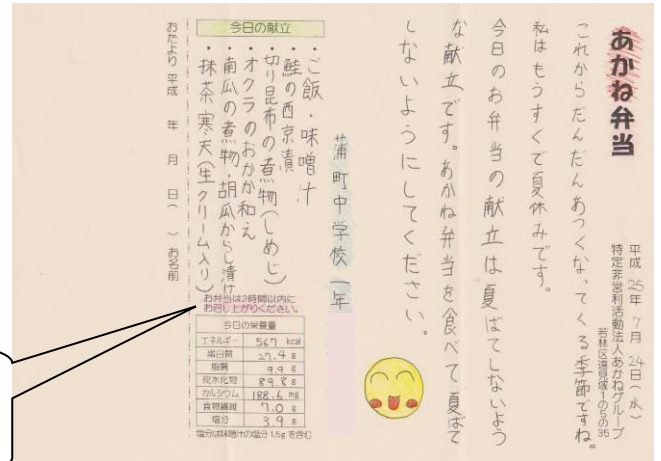 あかね弁当
平成25年7月24日(水)
特定非営利活動法人あかねグループ
若林区遠見塚1の5の35
これからだんだんあつくなってくる季節ですね。
私はもうすぐで夏休みです。
今日のお弁当の献立は夏ばてしないよう
な献立です。あかね弁当を食べて、夏ばて
しないようにしてください。
蒲町中学校一年
今日の献立
・ご飯・味噌汁
・鮭の西京漬
・切り昆布の煮物(しめじ)
・オクラのおかか和え
・南瓜の煮物・胡瓜からし漬け
・抹茶寒天(生クリーム入り)
お弁当は2時間以内に
お召し上がりください。
今日の栄養量
エネルギー 567 kcal
蛋白質 27.4 g
脂質 9.9 g
炭水化物 89.8 g
カルシウム 188.6 mg
食物繊維 7.0 g
塩分 3.9 g
塩分は味噌汁の塩分1.5gを含む
おたより 平成 年 月 日( ) お名前